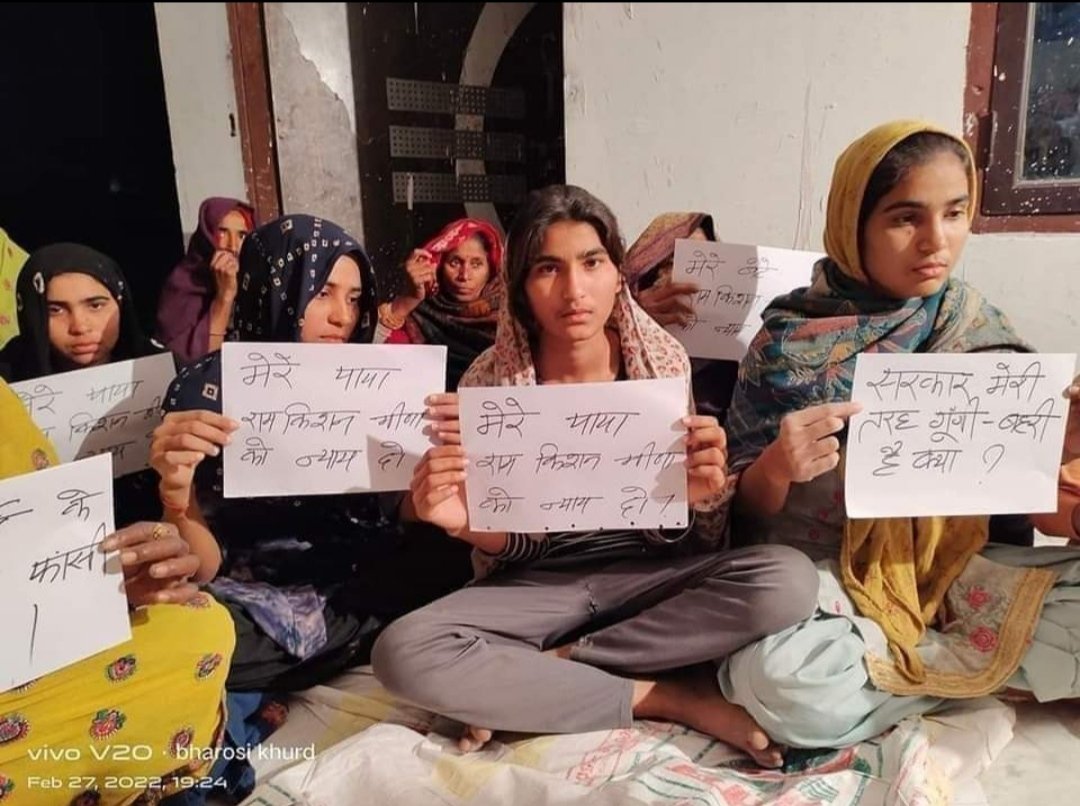 मेरे पापा
किशन
मेरे पापा
राम किशन मीणा
को न्याय दो
मेरे पापा
राम किशन मीणा
को न्याय दो !
मेरे बेटे
राम किशन
को न्याय
सरकार मेरी
तरह गूंगी-बहरी
है क्या ?
के
फांसी
।
vivo V20 · bharosi khurd
Feb 27, 2022, 19:24